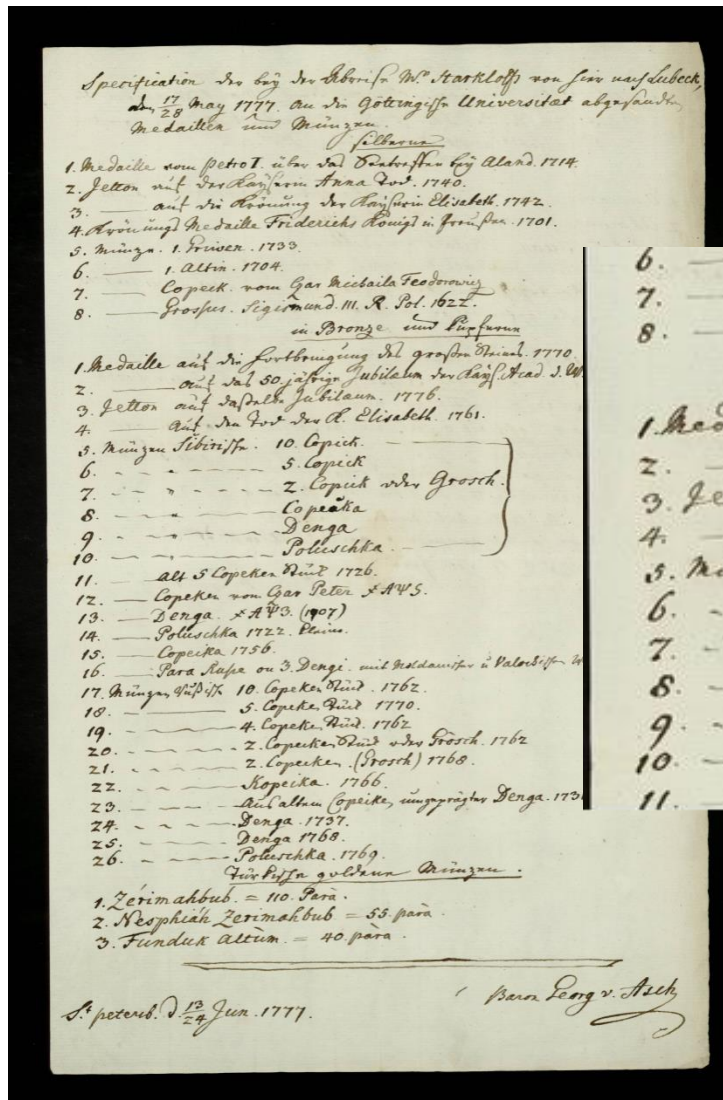 Specification der bey der Abreise Mr. Starkloffs von hier nach Lubeck,
den 17/28 May 1777. an die Göttingische Universitæt abgesandten
Medaillen und Münzen.
silberne
1. Medaille vom Petro I. über das bey Aland. 1714.
2. Jetton auf der Kayserin Anna Tod. 1740.
3. —— auf die Krönung der Kayserin Elisabeth. 1742.
4. Krönungs Medaille Friderichs Königs in Preußen. 1701.
5. Münze. 1. Griwen. 1733.
6. —— 1. Altin. 1704.
7. —— Copeck. vom Czar Michaila Feodorowiz
8. —— Grossus. Sigismund. III. R. Pol. 1622.
in Bronze und Kupferne
1. Medaille auf die Fortbringung des großen Steines. 1770.
2. —— auf das 50. jährige Jubilæum der Kays. Acad. d. W
3. Jetton auf dasselbe Jubilæum. 1776.
4. —— auf den Tod der K. Elisabeth. 1761.
5. Münzen Sibirische. 10. Copick.
6. - - - - 5. Copick
7. - - - - 2. Copick oder Grosch.
8. - - - - Copeaka
9. - - - - Denga
10. - - - - Poluschka
11. —— alt 5 Copeken Stück 1726.
12. —— Copeken vom Czar Peter ҂АѰ5.
13. —— Denga. ҂АѰ3. (1707)
14. —— Poluschka 1722. kleine.
15. —— Copeika 1756.
16. —— Para Rußa on 3. Dengi. mit Moldauischer u Valachischer W
17. Münzen Rußisch 10. Copeken Stück. 1762.
18. —— 5. Copeken Stück 1770.
19. —— 4. Copeken Stück. 1762
20. —— 2. Copecken Stück oder Grosch. 1762
21. —— 2. Copecken. (Grosch) 1768.
22. —— Kopeika. 1766.
23. —— Aus altem Copeike, umgeprägter Denga. 173
24. —— Denga. 1737.
25. —— Denga 1768.
26. —— Poluschka. 1769.
Türkische goldene Münzen.
1. Zérimahbub. = 110. Para.
2. Nesphiáh Zerimahbub = 55. para.
3. Funduk Altùm. = 40. pàra.
St peterb. d. 13/24 Jun. 1777.
Baron Georg v. Asch
6.
7.
8.
1. Med
2.
3. Je
4.
5. Mü
6.
7.
8.
9.
10
11.